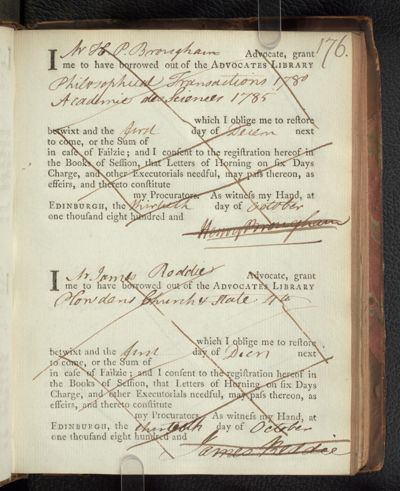 176.
I Mr H. P. Brougham Advocate, grant
me to have borrowed out of the ADVOCATES LIBRARY
Philosophical Transactions 1780
Academie des Sciences 1785
which I oblige me to restore
betwixt and the first day of Decem next
to come, or the Sum of
in case of Failzie; and I consent to the registration hereof in
the Books of Session, that Letters of Horning on six Days
Charge, and other Executorials needful, may pass thereon, as
effeirs, and thereto constitute
my Procurators. As witness my Hand, at
EDINBURGH, the thirtieth day of October
one thousand eight hundred and
Henry Brougham
I Mr James Reddie Advocate, grant
me to have borrowed out of the ADVOCATES LIBRARY
Plowdens Church & State 4to
which I oblige me to restore
betwixt and the first day of Decem next
to come, or the Sum of
in case of Failzie; and I consent to the registration hereof in
the Books of Session, that Letters of Horning on six Days
Charge, and other Executorials needful, may pass thereon, as
effeirs, and thereto constitute
my Procurators. As witness my Hand, at
EDINBURGH, the thirtieth day of October
one thousand eight hundred and
James Reddie